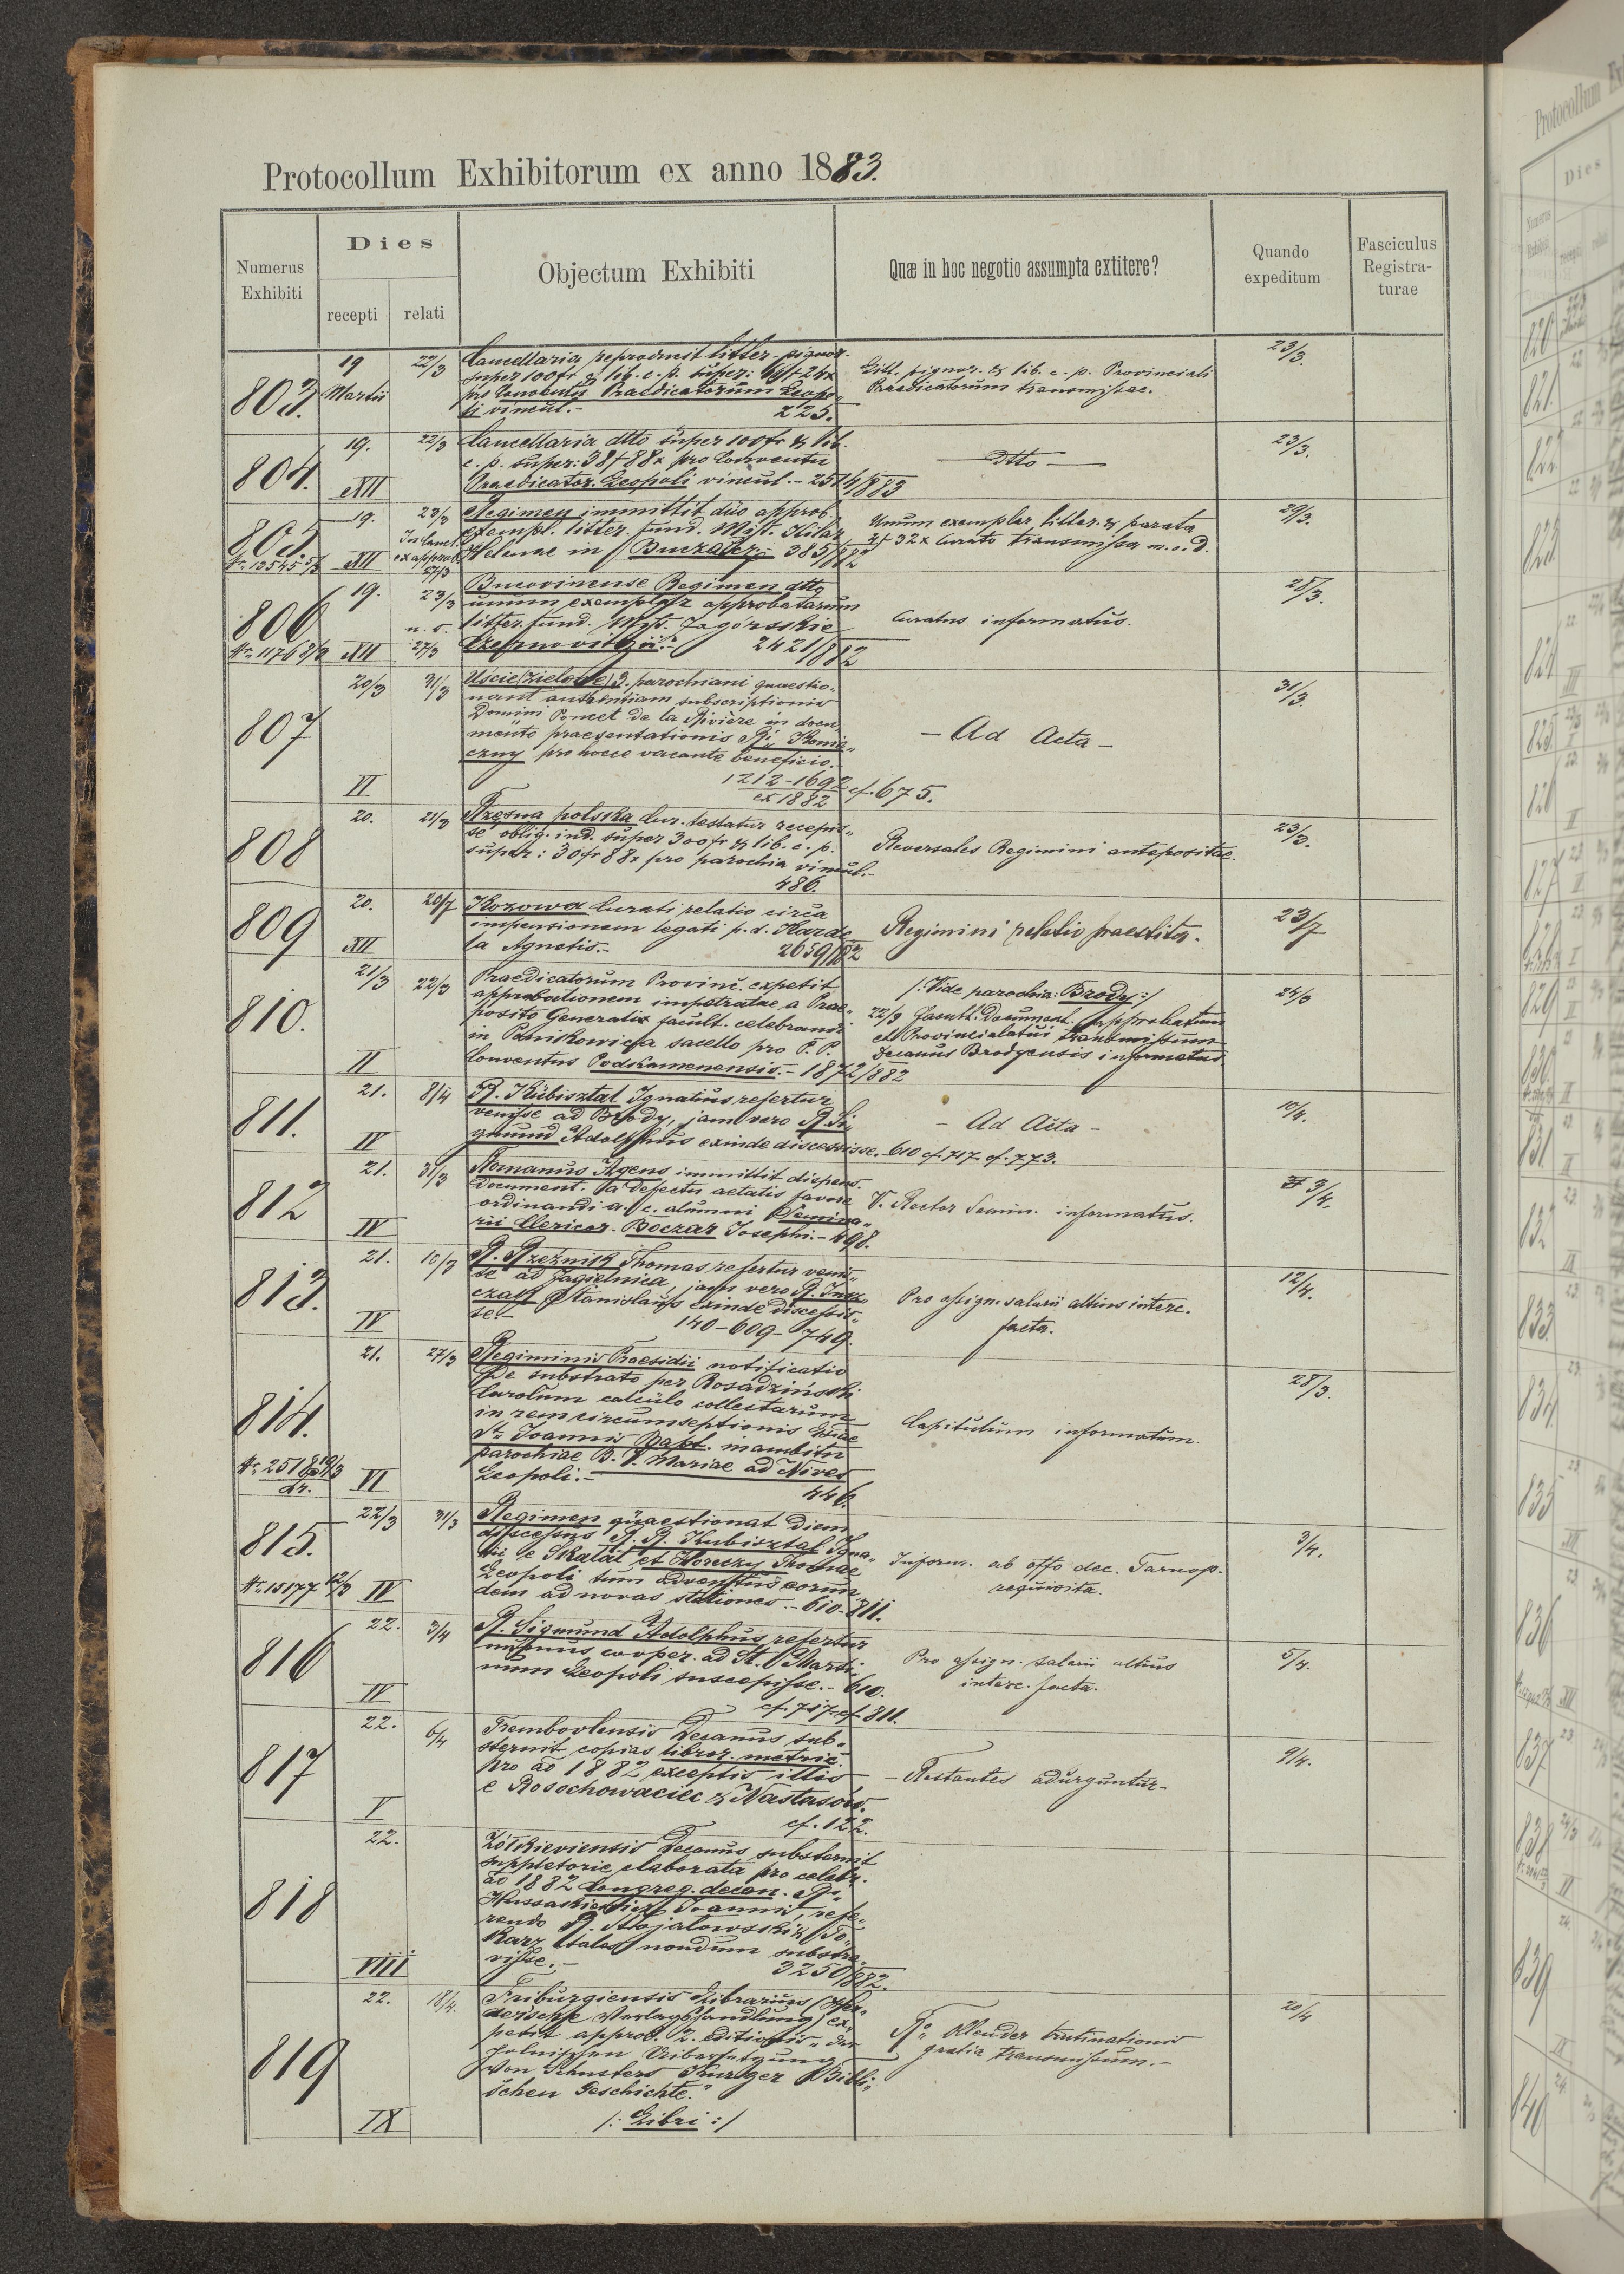 Protocollum Exhibitorum ex anno 1883.
Numerus Exhibiti
Dies
recepti
relati
Objectum Exhibiti
Quæ in hoc negotio assumpta extitere?
Quando expeditum
Fasciculus Registra-
turae
803. 19 Martii 22/3
Cancellaria reproducit litter. pignor.
super 100 fr & lib. c. p. super:
pro Conventu Praedicatorum Leopo„
li vincul.- 225.
Litt. pignor. & lib. c. p. Provinciali
Praedicatorum transmissae.
23/3.
804. 19. 22/3 XII
Cancellaria dtto super 100 fr & lib.
c. p. super: 38 f 88 x pro Conventu
Praedicator. Leopoli vincul.- 2514/883
— dtto —
23/3.
805. 19. 23/3
Nr. 13545 XII
Regimen immittit duo approb.
exempl. litter. fund. Mist.
Helenae in Buczacz.- 385/882
Unum exemplar litter. & parata
2 f 32 x Curato transmissa m. s. D.
29/3.
806 19. 23/3
Nr. 11768/3 XII 27/3
Bucovinense Regimen dtto
unum exemplar approbatarum
litter. fund. Mist. Jagórskie
Czernovitzii.- 2421/882
Curatus informatus.
28/3.
807 20/3 31/3 II
Uście (zielone) 3. parochiani quaestio„
nant authentiam subscriptionis
Domini Poncet de la Rivière in docu„
mento praesentationis
pro hocce vacante beneficio.-
1212-1692 cf. 675.
ex 1882
- Ad Acta -
31/3.
808 20. 21/3
Rzęsna polska Cur. testatur recepis„
se oblig. ind. super 300 fr & lib. c. p.
super: 30 fr 88 x pro parochia vincul.-
486.
Reversales Regimini antepositae.
23/3.
809 20. 20/7 XII
Kozowa Curati relatio circa
impensionem legati p. d.
la Agnetis.- 2659/882
Regimini relatio praestita.
23/7
810. 21/3 22/3 II
Praedicatorum Provinc. expetit
approbationem impetratae a Prae„
posito Generali facult. celebrandi
in Ponikowica sacello pro P. P.
Conventus Podskamenensis.- 1872/882
/: Vide parochia: Brody :/
22/3 Facult. Document. approbatum
et Provincialatui transmissum
Decanus Brodyensis informatus.
24/3
811. 21. 8/4 IV
R. Kubisztal Ignatius refertur
venisse ad Brody, jam vero R. Si„
gmund Adolphus exinde discessisse.- 610 cf. 717. cf. 773.
- Ad Acta -
10/4.
812 21. 31/3 IV
Romanus Agens immittit dispens.
Document. a defectu aetatis favore
ordinandi a. c. alumni Semina„
rii Clericor. Boczar Josephi.- 498.
V. Rector Semin. informatus.
3/4.
813. 21. 10/3 IV
R. Rzeźnik Thomas refertur venis„
se ad Jagielnica, jam vero
Stanislaus exinde discessis„
se.- 140-609-749.
Pro assign. salarii altius interc.
facta.
12/4.
814. 21. 27/3
Nr. 2518 19/3
pr. VI
Regiminis Praesidii notificatio
De substrato per Rosadziński
Carolum calculo collectarum
in rem circumseptionis Eccliae
St. Joannis Bapt. in ambitu
parochiae B. V. Mariae ad Nives
Leopoli.- 446.
Capitulum informatum.
28/3.
815. 22/3 31/3
Nr. 15177 12/3 IV
Regimen quaestionat Diem
discessus R. R. Kubisztal Igna„
tii e Skałat et Thomae
Leopoli tum adventus eorun„
dem ad novas stationes.- 610-811.
Inform. ab offo dec. Tarnop.
requisita.
3/4.
816 22. 3/4 IV
R. Sigmund Adolphus refertur
munus cooper. ad St. Marti„
num Leopoli suscepisse.- 610.
cf. 717. cf. 811.
Pro assign. salarii altius
interc. facta.
5/4.
817 22. 6/4 V
Trembovlensis Decanus sub„
sternit copias libror. metric.
pro ao 1882 exceptis illis
e Rosochowaciec & Nastasów.
cf. 122.
- Restantes adurguntur -
9/4.
818 22. VIII
Żółkieviensis Decanus substernit
suppletorie elaborata pro celebr.
ao 1882 Congreg. decan.
Joannis, refe„
rendo R. Stojalowski & To„
karz tales nondum substra„
visse.- 3250/882.
819 22. 18/4. IX
Friburgiensis Librarius (Her„
der'sche Verlagshandlung) ex„
petit approb. 2. editionis „der
polnischen Uibersetzung
von Schusters Kurzer Bibli„
schen Geschichte."
/: Libri :/
Ro. Ollender trutinationis
gratia transmissum.-
20/4
Protocollum Ex
Dies
820
821
822
823
824
825
826
827
828
829
830
831
832
833
834
835
836
837
838
839
840